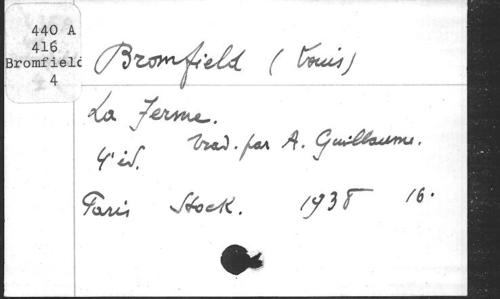 440 A
416
Bromfield
4
Bromfield (Louis)
La Ferme.
Trad. par A. Guillaume.
4e éd.
Paris Stock. 1938 16.